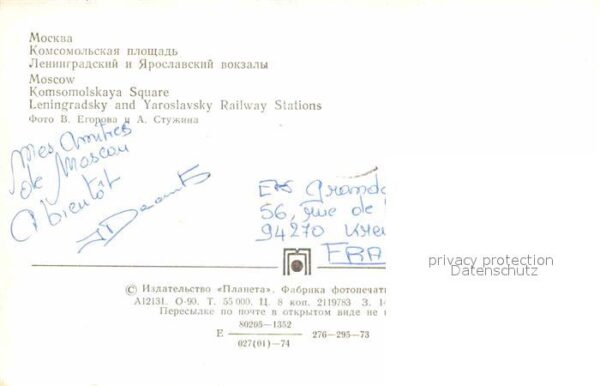 Москва
Комсомольская площадь
Ленинградский и Ярославский вокзалы
Moscow
Komsomolskaya Square
Leningradsky and Yaroslavsky Railway Stations
Фото В. Егорова и А. Стужина
Mes Amitiés
de Moscou
A bientôt
Ets Grand
56, rue de
94270 Krem
FRA
privacy protection
Datenschutz
© Издательство «Планета». Фабрика фотопечат
А12131. О-90. Т. 55 000. Ц. 8 коп. 2119783. З. 1
Пересылке по почте в открытом виде не
80205-1352
Е 276-295-73
027(01)-74